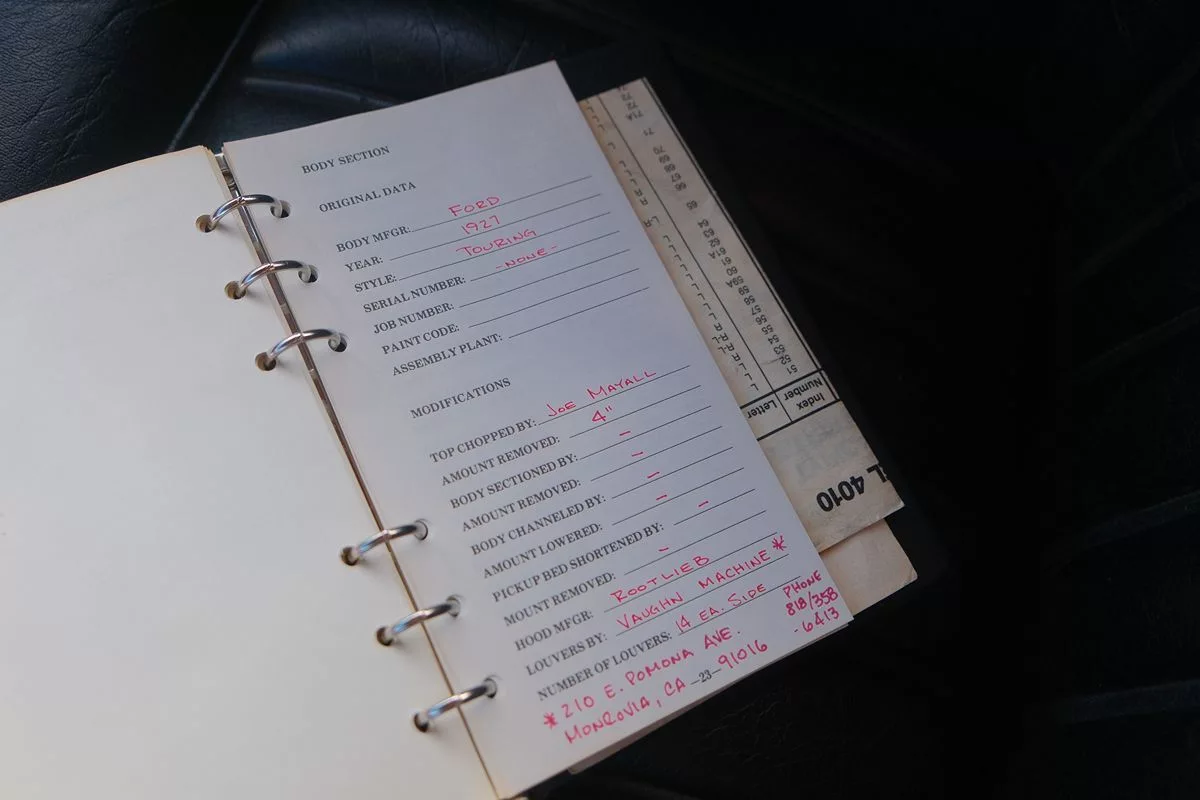 BODY SECTION
ORIGINAL DATA
BODY MFGR: FORD
YEAR: 1927
STYLE: TOURING
SERIAL NUMBER: -NONE-
JOB NUMBER:
PAINT CODE:
ASSEMBLY PLANT:
MODIFICATIONS
TOP CHOPPED BY: JOE MAYALL
AMOUNT REMOVED: 4"
BODY SECTIONED BY: –
AMOUNT REMOVED: –
BODY CHANNELED BY: –
AMOUNT LOWERED: –
PICKUP BED SHORTENED BY: –
MOUNT REMOVED: –
HOOD MFGR: ROOTLIEB
LOUVERS BY: VAUGHN MACHINE *
NUMBER OF LOUVERS: 14 EA. SIDE
PHONE
818/358
-6413
* 210 E. POMONA AVE.
MONROVIA, CA 91016
—23—
4010
Index
Number
Letter
51
52
53
54
55
56
57
58
59
59A
60
61
61A
62
63
64
65
66
67
68
69
70
71
71A
72